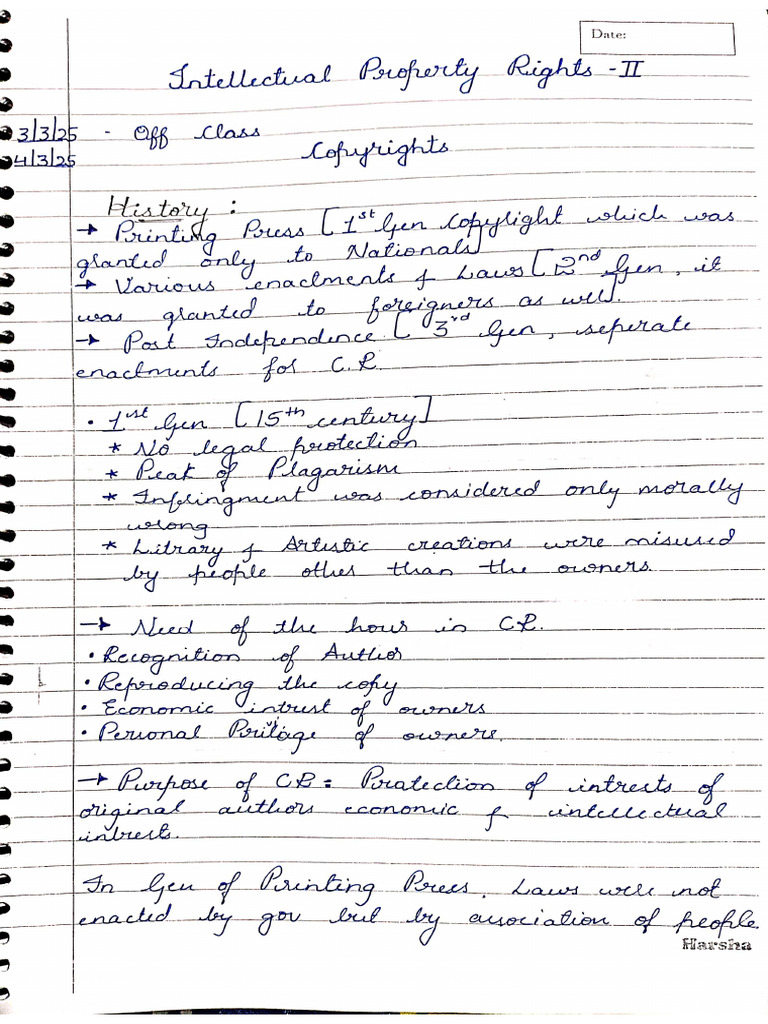 Date:
Intellectual Property Rights -II
3/3/25 - Off Class
4/3/25 Copyrights
History :
→ Printing Press [1st Gen Copyright which was
granted only to Nationals]
→ Various enactments & Laws [2nd Gen, it
was granted to foreigners as well].
→ Post Independence [3rd Gen, seperate
enactments for C.R.
• 1st Gen [15th century]
* No legal protection
* Peak of Plagarism
* Infringment was considered only morally
wrong
* Library & Artistic creations were misused
by people other than the owners.
→ Need of the hour in C.R.
• Recognition of Author
• Reproducing the copy
• Economic intrest of owners
• Personal Privilage of owners.
→ Purpose of CR = Protection of intrests of
original authors economic & intellectual
intrests.
In Gen of Printing Press, Laws were not
enacted by gov but by association of people.
Harsha